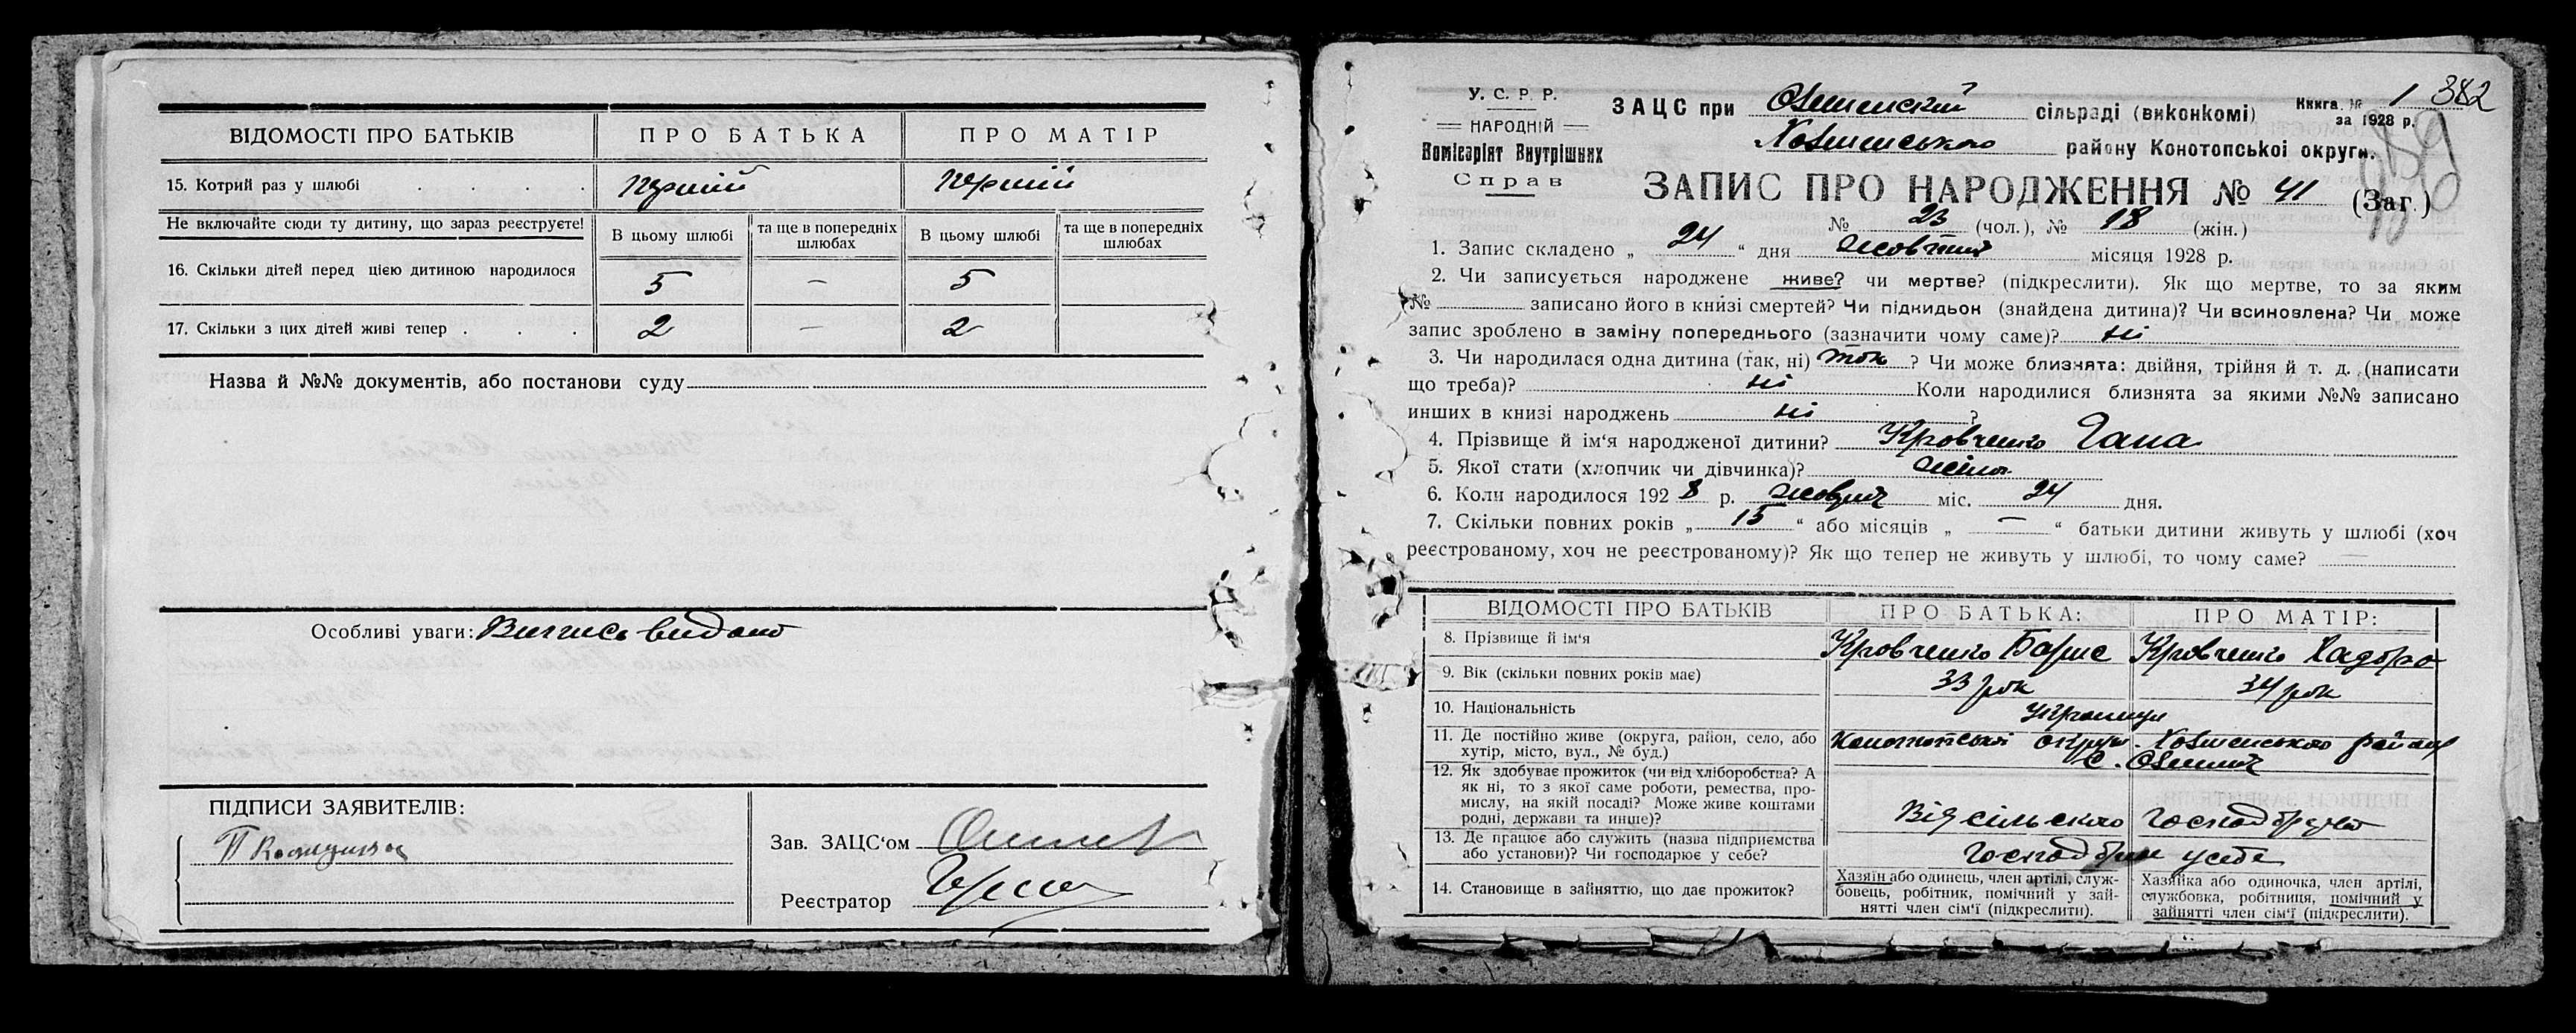 ВІДОМОСТІ ПРО БАТЬКІВ ПРО БАТЬКА ПРО МАТІР
15. Котрий раз у шлюбі . . . . перший перший
Не включайте сюди ту дитину, що зараз реєструєте!
В цьому шлюбі та ще в попередніх шлюбах В цьому шлюбі та ще в попередніх шлюбах
16. Скільки дітей перед цією дитиною народилося 5 – 5
17. Скільки з цих дітей живі тепер . . . 2 – 2
Назва й №№ документів, або постанови суду
Особливі уваги: Випись видано
ПІДПИСИ ЗАЯВИТЕЛІВ:
Зав. ЗАЦС‘ом
Реєстратор
У. С. Р. Р.
НАРОДНІЙ
Комісаріят Внутрішних
Справ
ЗАЦС при сільраді (виконкомі)
Книга № 1 382
за 1928 р.
району Конотопської округи.
ЗАПИС ПРО НАРОДЖЕННЯ № 41 (Заг.)
№ 23 (чол.), № 18 (жін.)
1. Запис складено „ 24 “ дня жовтня місяця 1928 р.
2. Чи записується народжене живе? чи мертве? (підкреслити). Як що мертве, то за яким
№ записано його в книзі смертей? Чи підкидьок (знайдена дитина)? Чи всиновлена? Чи може
запис зроблено в заміну попереднього (зазначити чому саме)? ні
3. Чи народилася одна дитина (так, ні) так ? Чи може близнята: двійня, трійня й т. д. (написати
що треба)? ні Коли народилися близнята за якими №№ записано
инших в книзі народжень ні ?
4. Прізвище й ім‘я народженої дитини? Кровченко Гана
5. Якої стати (хлопчик чи дівчинка)? жіноч.
6. Коли народилося 1928 р. жовтня міс. 24 дня.
7. Скільки повних років „ 15 “ або місяців „ — “ батьки дитини живуть у шлюбі (хоч
реєстрованому, хоч не реєстрованому)? Як що тепер не живуть у шлюбі, то чому саме? —
ВІДОМОСТІ ПРО БАТЬКІВ ПРО БАТЬКА: ПРО МАТІР:
8. Прізвище й ім‘я Кровченко Борис Кровченко Хадора
9. Вік (скільки повних років має) 33 рок 34 рок
10. Національність Українци
11. Де постійно живе (округа, район, село, або
хутір, місто, вул., № буд.) Конотопської округи. району
с.
12. Як здобуває прожиток (чи від хліборобства? А
як ні, то з якої саме роботи, ремества, про-
мислу, на якій посаді? Може живе коштами
родні, держави та инше)? Від сільского господарства
13. Де працює або служить (назва підприємства
або установи)? Чи господарює у себе? господарює у себе
14. Становище в зайняттю, що дає прожиток?
Хазяїн або одинець, член артілі, служ-
бовець, робітник, помічний у зай-
нятті член сім‘ї (підкреслити).
Хазяйка або одиночка, член артілі,
службовка, робітниця, помічний у
зайнятті член сім‘ї (підкреслити).